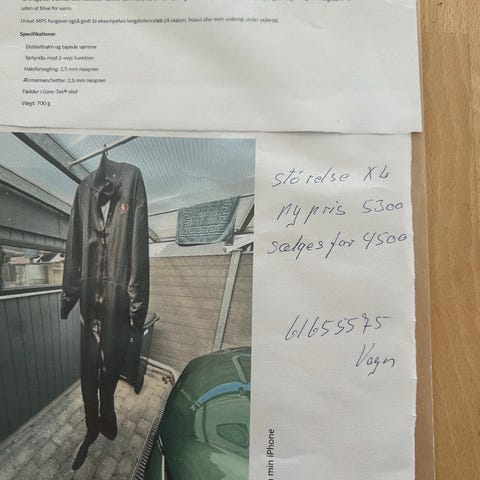 uden at blive for varm.
Ursuit MPS fungerer også godt til eksempelvis langdistanceløb på skøjter, fiskeri eller som undertøj under sejlertøj.
Specifikationer
Dobbeltsøm og tapede sømme
Tørlynlås med 2-vejs funktion
Halsforsegling: 2,5 mm neopren
Ærmemanchetter: 2,5 mm neopren
Fødder i Gore-Tex® stof
Vægt: 700 g
størelse XL
ny pris 5300
sælges for 4500
61655575
Vagn
min iPhone